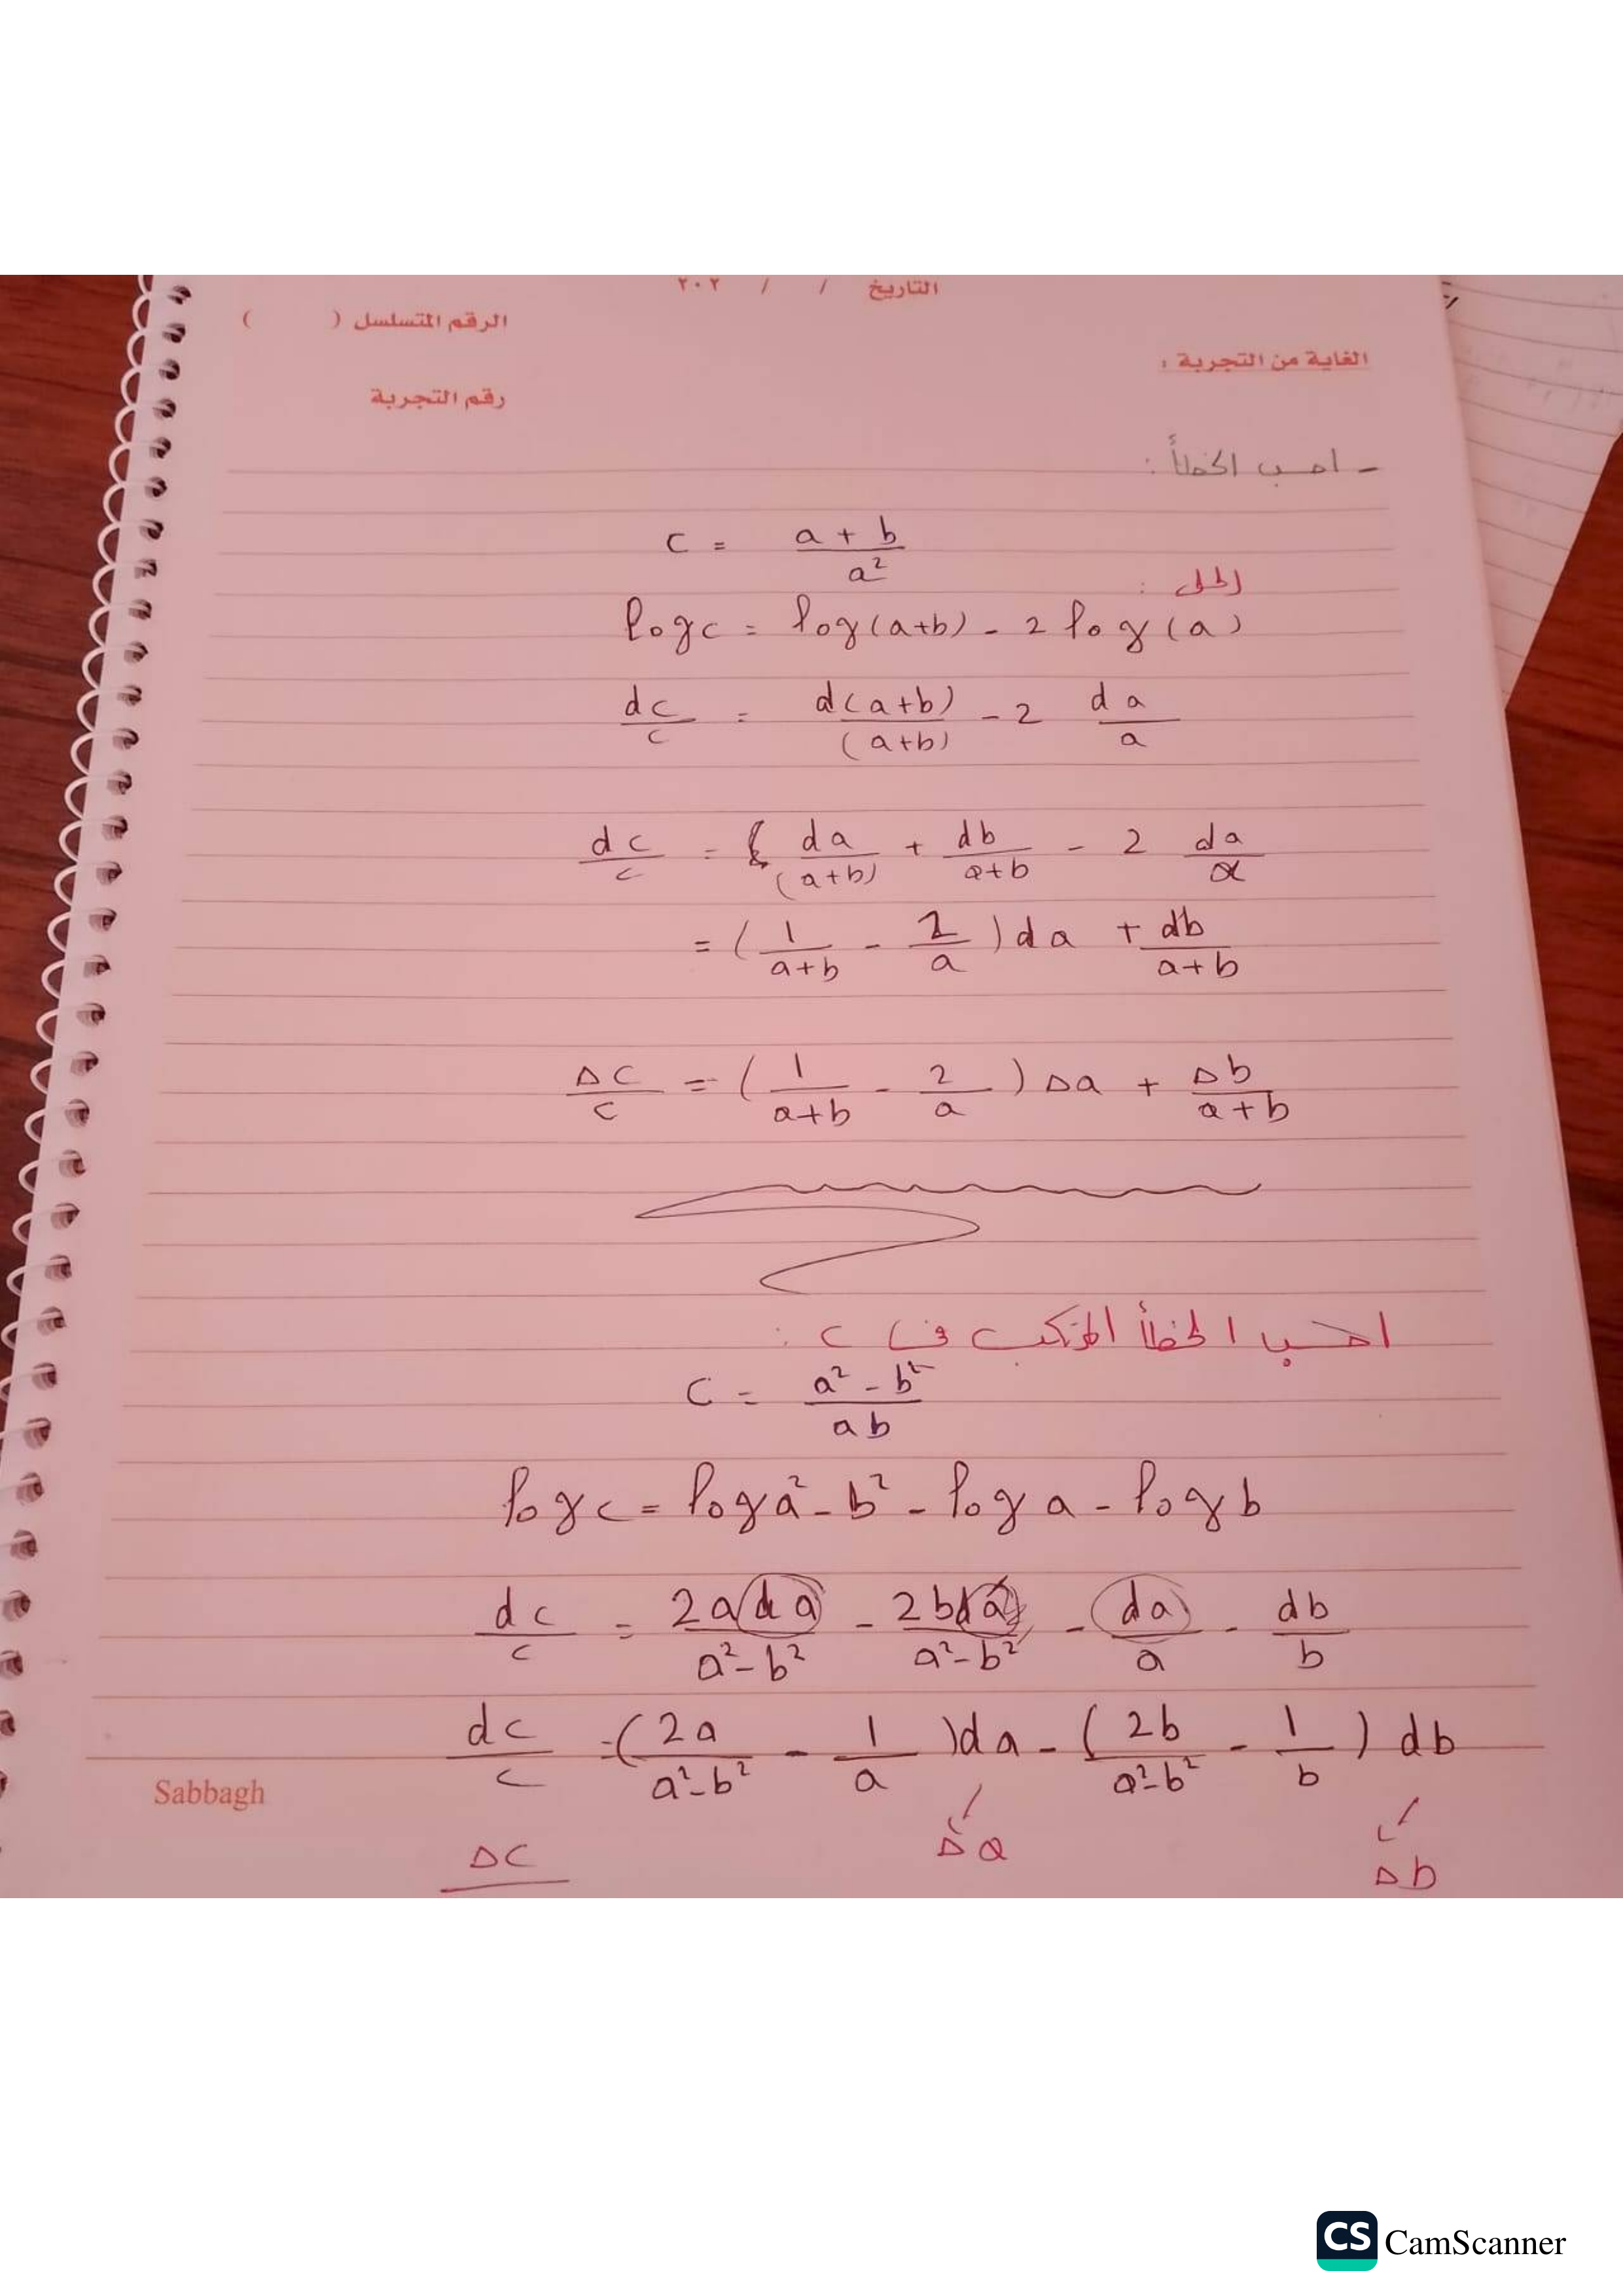 التاريخ / / ٢٠٢
الرقم المتسلسل ( )
الغاية من التجربة :
رقم التجربة
- احسب الخطأ :
c = (a + b) / a²
الحل :
log c = log (a+b) - 2 log (a)
dc/c = d(a+b)/(a+b) - 2 da/a
dc/c = da/(a+b) + db/(a+b) - 2 da/a
= (1/(a+b) - 2/a) da + db/(a+b)
Δc/c = (1/(a+b) - 2/a) Δa + Δb/(a+b)
احسب الخطأ المرتكب في c :
c = (a² - b²) / ab
log c = log a² - b² - log a - log b
dc/c = 2a da/(a²-b²) - 2b da/(a²-b²) - da/a - db/b
dc/c = (2a/(a²-b²) - 1/a) da - (2b/(a²-b²) - 1/b) db
Sabbagh
Δc Δa Δb
CS CamScanner